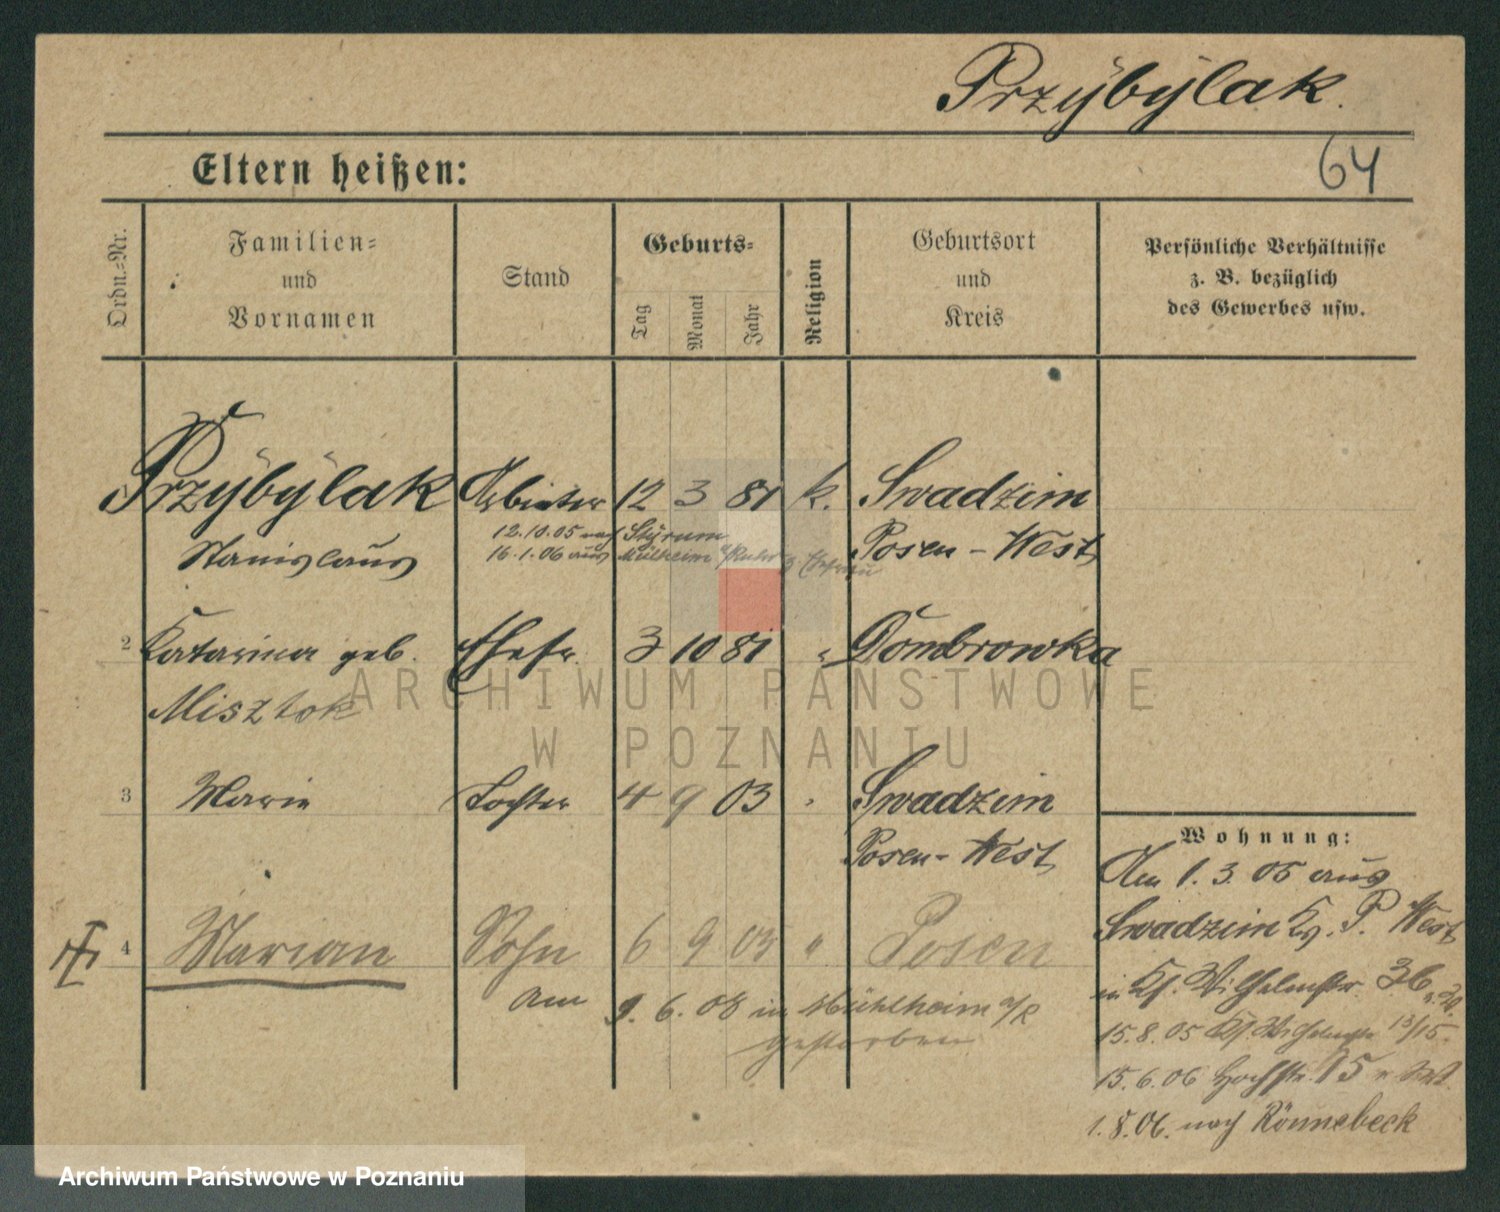 Przÿbÿlak.
64
Eltern heißen:
Ordn.-Nr.
Familien-
und
Vornamen
Stand
Geburts-
Tag
Monat
Jahr
Religion
Geburtsort
und
Kreis
Persönliche Verhältnisse
z. B. bezüglich
des Gewerbes usw.
Przÿbÿlak Arbeiter 12 3 81 k. Swadzim
12.10.05 nach Stÿrum
Stanislaus 16.1.06 aus Mülheim a/Ruhr z. Ehefrau Posen-West
2 Katarina geb. Ehefr. 3 10 81 " Dombrowka
Misztok
3 Marie Tochter 4 9 03 " Swadzim
Posen-West
4 Marian Sohn 6 9 05 " Posen
am 9. 6. 08 in Mühlheim a/R
gestorben
Wohnung:
Am 1. 3. 05 aus
Swadzim Kr. P. West
in Wilhelmstr. 36
15.8.05 13/15
15.6.06 Hochstr. 15
1.8.06. nach Rönnebeck
ARCHIWUM PAŃSTWOWE
W POZNANIU
Archiwum Państwowe w Poznaniu